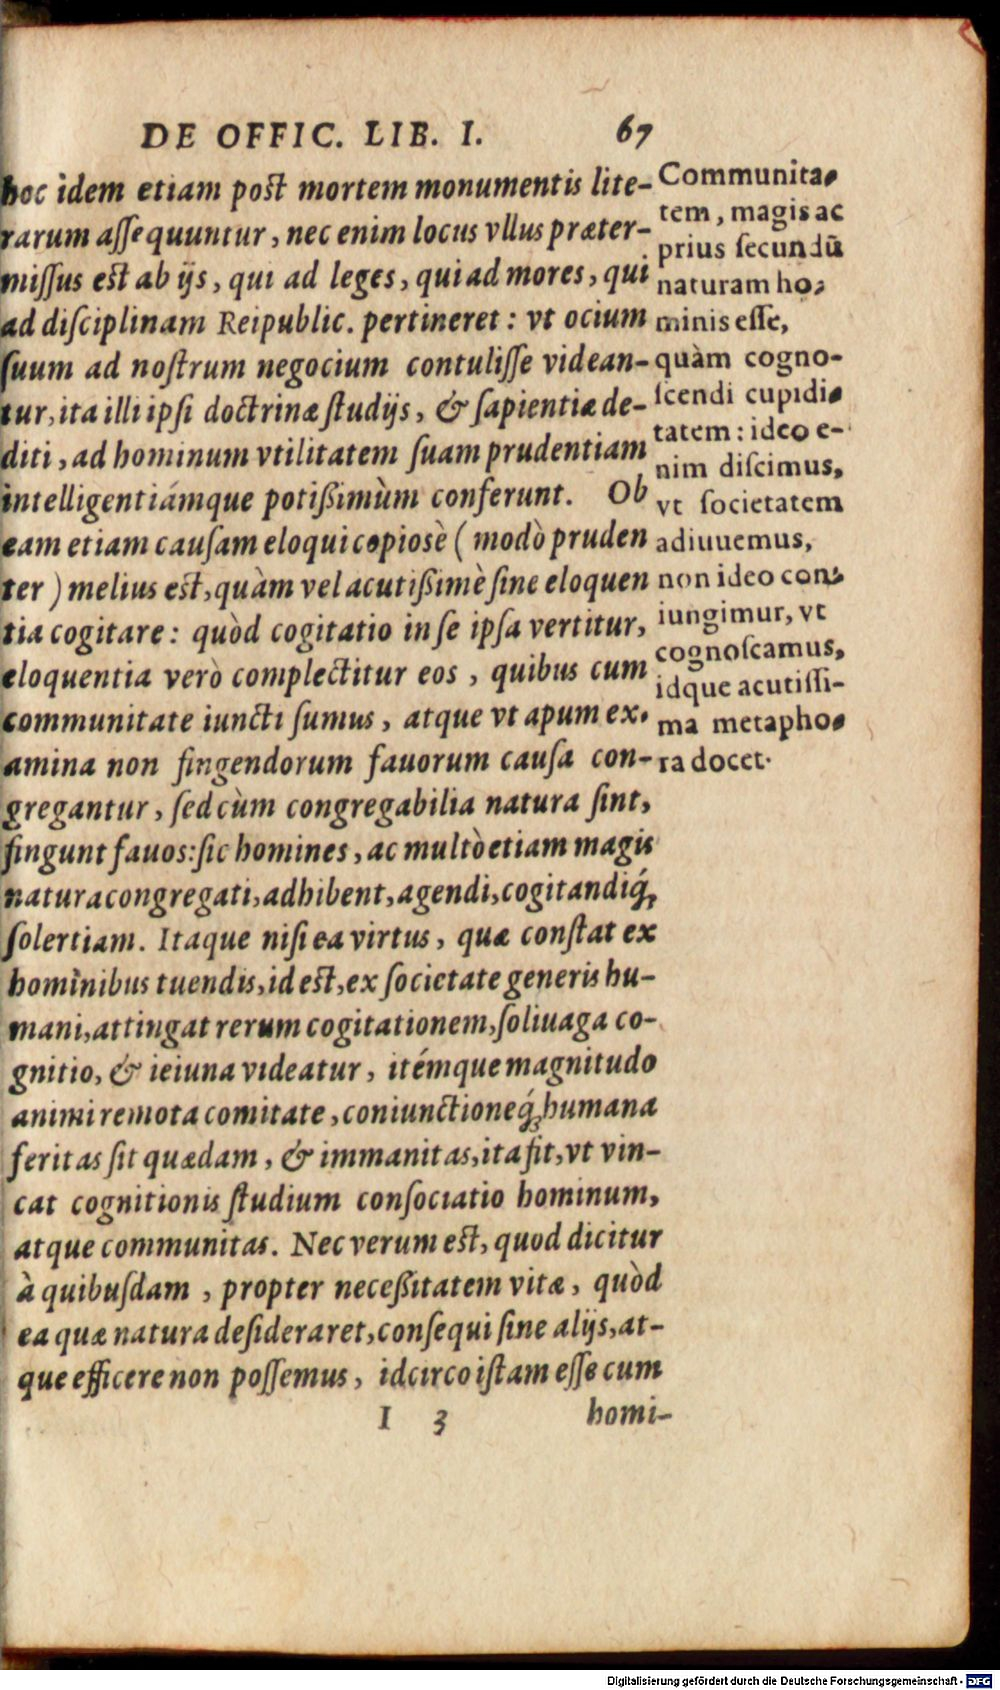 DE OFFIC. LIB. I. 67
hoc idem etiam post mortem monumentis lite-
rarum aſſequuntur, nec enim locus vllus præter-
miſſus est ab ijs, qui ad leges, qui ad mores, qui
ad diſciplinam Reipublic. pertineret: vt ocium
ſuum ad noſtrum negocium contuliſſe videan-
tur, ita illi ipſi doctrinæ ſtudijs, & ſapientiæ de-
diti, ad hominum vtilitatem ſuam prudentiam
intelligentiámque potißimùm conferunt. Ob
eam etiam cauſam eloqui copiosè (modò pruden
ter) melius est, quàm vel acutißimè ſine eloquen
tia cogitare: quòd cogitatio in ſe ipſa vertitur,
eloquentia verò complectitur eos, quibus cum
communitate iuncti ſumus, atque vt apum ex-
amina non fingendorum fauorum cauſa con-
gregantur, ſed cùm congregabilia natura ſint,
fingunt fauos: ſic homines, ac multò etiam magis
natura congregati, adhibent, agendi, cogitandiq́;
ſolertiam. Itaque niſi ea virtus, quæ conſtat ex
hominibus tuendis, id est, ex ſocietate generis hu-
mani, attingat rerum cogitationem, ſoliuaga co-
gnitio, & ieiuna videatur, itémque magnitudo
animi remota comitate, coniunctioneq́; humana
feritas ſit quædam, & immanitas, ita fit, vt vin-
cat cognitionis ſtudium conſociatio hominum,
atque communitas. Nec verum est, quod dicitur
à quibuſdam, propter neceßitatem vitæ, quòd
ea quæ natura deſideraret, conſequi ſine alijs, at-
que efficere non poſſemus, idcirco iſtam eſſe cum
I 3 homi-
Communita-
tem, magis ac
prius ſecundū
naturam ho-
minis eſſe,
quàm cogno-
ſcendi cupidi-
tatem: ideo e-
nim diſcimus,
vt ſocietatem
adiuuemus,
non ideo con-
iungimur, vt
cognoſcamus,
idque acutiſſi-
ma metapho-
ra docet.
Digitalisierung gefördert durch die Deutsche Forschungsgemeinschaft - DFG